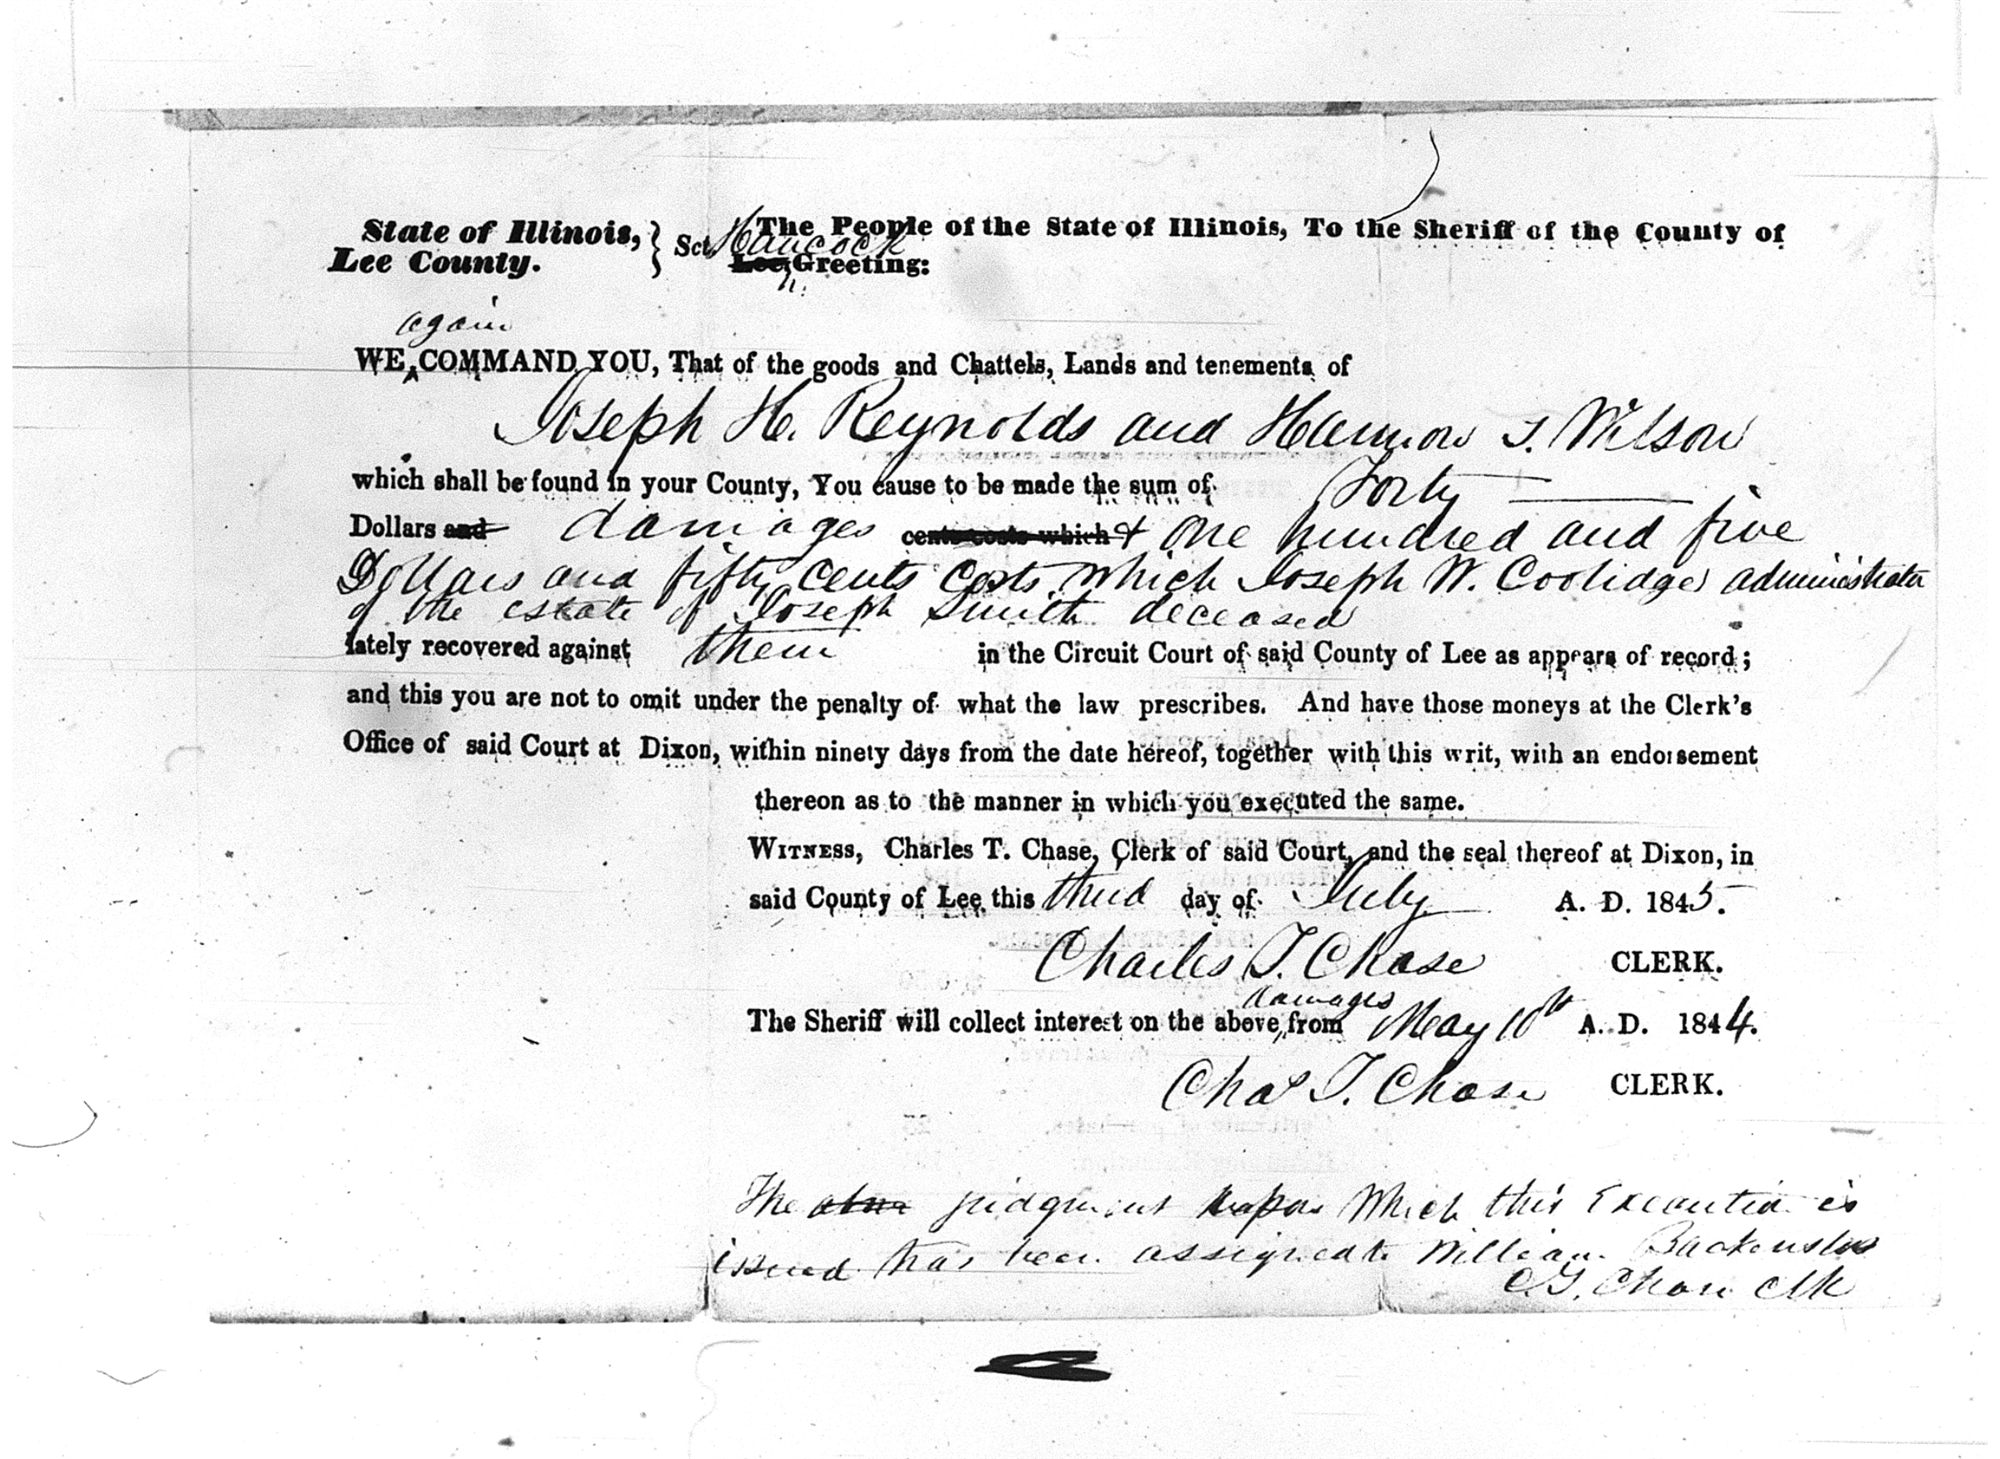 State of Illinois, } Sct. The People of the State of Illinois, To the Sheriff of the County of
Lee County. Hancock Lee, Greeting:
again
WE, COMMAND YOU, That of the goods and Chattels, Lands and tenements of
Joseph H. Reynolds and Harmon T. Wilson
which shall be found in your County, You cause to be made the sum of Forty
Dollars and damages cents costs which & One hundred and five
Dollars and fifty cents costs which Joseph W. Coolidge administrator
of the estate of Joseph Smith deceased
lately recovered against them in the Circuit Court of said County of Lee as appears of record;
and this you are not to omit under the penalty of what the law prescribes. And have those moneys at the Clerk's
Office of said Court at Dixon, within ninety days from the date hereof, together with this writ, with an endorsement
thereon as to the manner in which you executed the same.
WITNESS, Charles T. Chase, Clerk of said Court, and the seal thereof at Dixon, in
said County of Lee this third day of July A. D. 1845.
Charles T. Chase CLERK.
damages
The Sheriff will collect interest on the above, from May 10th A. D. 1844.
Chas T. Chase CLERK.
The judgment upon which this Execution is
issued has been assigned to William Backenstos
C. T. Chase Clk